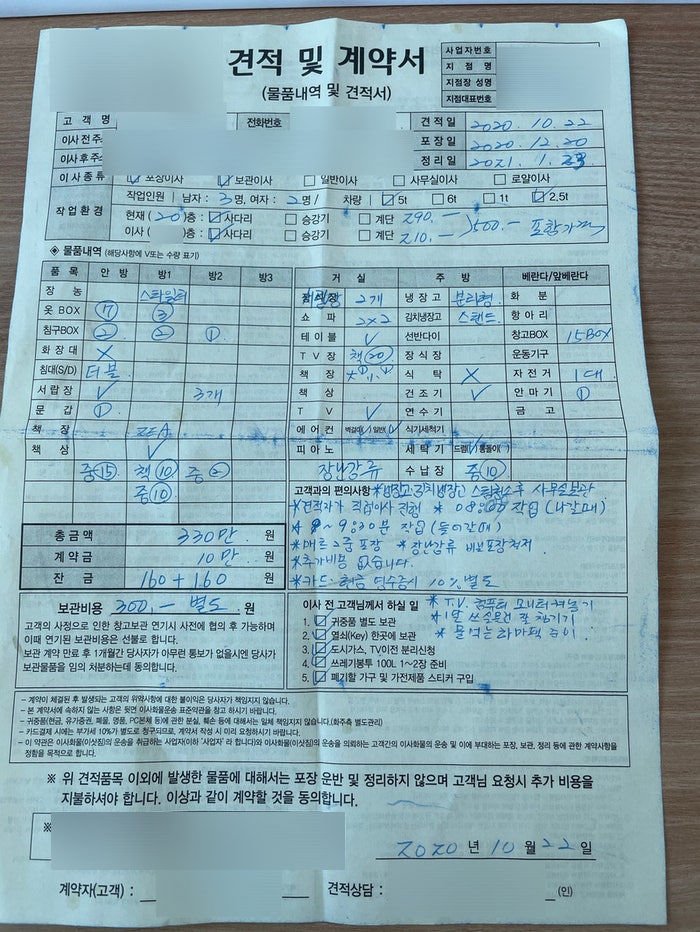 견적 및 계약서
(물품내역 및 견적서)
사업자번호
지 점 명
지점장 성명
지점대표번호
고 객 명 전화번호 견 적 일 2020. 10. 22
이사전주 포 장 일 2020. 12. 20
이사후주 정 리 일 2021. 1. 23
이사종류 포장이사 보관이사 일반이사 사무실이사 로얄이사
작업환경
작업인원 | 남자 : 3명, 여자 : 2명 / 차량 | 5t 6t 1t 2.5t
현재 (20)층 : 사다리 승강기 계단 290.-
이사 ( )층 : 사다리 승강기 계단 210.- 500.- 포함가격
◈ 물품내역 (해당사항에 V또는 수량 표기)
품 목 안 방 방1 방2 방3 거 실 주 방 베란다/앞베란다
장 농 스타일러 2개 냉 장 고 분리형 화 분
옷 BOX 7 3 쇼 파 2x2 김치냉장고 스탠드 항 아 리
침구BOX 2 2 1 테 이 블 ✓ 선반다이 창고BOX 15BOX
화 장 대 X T V 장 책 20 장 식 장 운동기구
침대(S/D) 더블 책 장 식 탁 X 자 전 거 1대
서 랍 장 ✓ 3개 책 상 건 조 기 ✓ 안 마 기 1
문 갑 1 T V ✓ 연 수 기 금 고
책 장 에 어 컨 벽걸이 일반 식기세척기
책 상 ✓ 피 아 노 세 탁 기 드럼 통돌이
중 15 책 10 중 장난감류 수 납 장 중 10
중 10
고객과의 편의사항 *냉장고 김치냉장고 사무실보관
*견적자가 직접이사 진행 * 08:00 작업 (나갈때)
* 9:30분 작업 (들어갈때)
포장 * 장난감류 바보포장처저
*추가비용 없습니다.
*카드. 현금 영수증시 10% 별도
총 금 액 330만. 원
계 약 금 10만. 원
잔 금 160 + 160 원
보관비용 300,- 별도. 원
고객의 사정으로 인한 창고보관 연기시 사전에 협의 후 가능하며
이때 연기된 보관비용은 선불로 합니다.
보관 계약 만료 후 1개월간 당사자가 아무런 통보가 없을시엔 당사가
보관물품을 임의 처분하는데 동의합니다.
이사 전 고객님께서 하실 일 * T.V. 컴퓨터 모니터
1. 귀중품 별도 보관
2. 열쇠(Key) 한곳에 보관
3. 도시가스, TV이전 분리신청
4. 쓰레기봉투 100L 1~2장 준비
5. 폐기할 가구 및 가전제품 스티커 구입
- 계약이 체결된 후 발생하는 고객의 위약사항에 대한 불이익은 당사자가 책임지지 않습니다.
- 본 계약서에 속하지 않는 사항은 뒷면 이사화물운송 표준약관을 참고 하시기 바랍니다.
- 귀중품(현금, 유가증권, 패물, 명품, PC본체 등)에 관한 분실, 훼손 등에 대해서는 일체 책임지지 않습니다.(화주측 별도관리)
- 카드결제 시에는 부가세 10%가 별도로 청구되므로, 계약서 작성 시 미리 요청하시기 바랍니다.
- 이 약관은 이사화물(이삿짐)의 운송을 취급하는 사업자(이하 '사업자' 라 합니다)와 이사화물(이삿짐)의 운송을 의뢰하는 고객간의 이사화물의 운송 및 이에 부대하는 포장, 보관, 정리 등에 관한 계약사항을
정함을 목적으로 합니다.
※ 위 견적품목 이외에 발생한 물품에 대해서는 포장 운반 및 정리하지 않으며 고객님 요청시 추가 비용을
지불하셔야 합니다. 이상과 같이 계약할 것을 동의합니다.
※
2020 년 10 월 22 일
계약자(고객) : 견적상담 : (인)